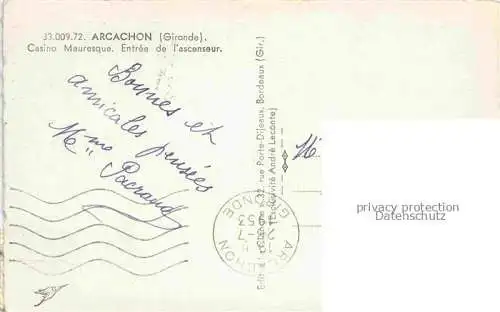 33.009.72. ARCACHON (Gironde).
Casino Mauresque. Entrée de l'ascenseur.
Bonnes et
amicales pensées
Mme
32, rue Porte-Dijeaux, Bordeaux (Gir.)
(Exclusivité André Leconte)
ARCACHON
GIRONDE
privacy protection
Datenschutz